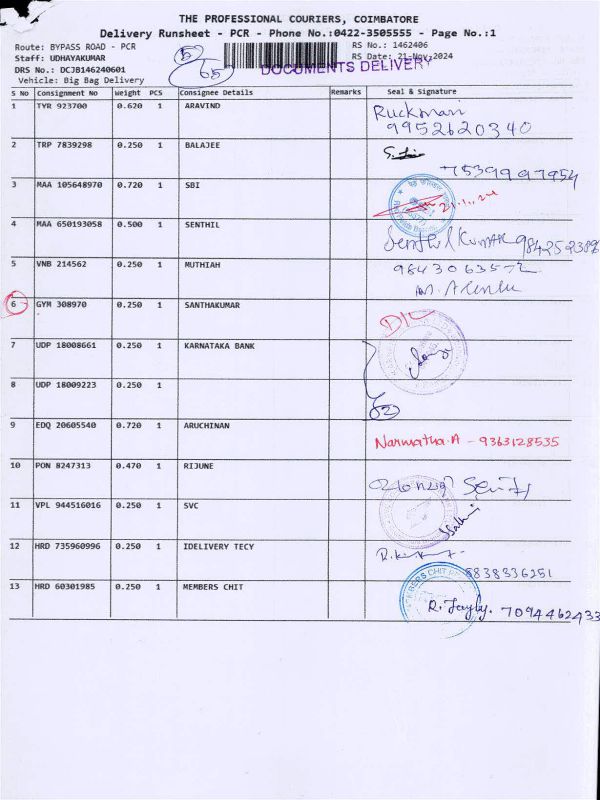 THE PROFESSIONAL COURIERS, COIMBATORE
Delivery Runsheet - PCR - Phone No.:0422-3505555 - Page No.:1
Route: BYPASS ROAD - PCR
RS No.: 1462406
Staff: UDHAYAKUMAR
RS Date: 21-Nov-2024
DRS No.: DCJB146240601
DOCUMENTS DELIVERY
Vehicle: Big Bag Delivery
5
65
S No Consignment No Weight PCS Consignee Details Remarks Seal & Signature
1 TYR 923700 0.620 1 ARAVIND Ruckmani
9952620340
2 TRP 7839298 0.250 1 BALAJEE
7539997954
3 MAA 105648970 0.720 1 SBI
4 MAA 650193058 0.500 1 SENTHIL Senthil Kumar
5 VNB 214562 0.250 1 MUTHIAH
6 GYM 308970 0.250 1 SANTHAKUMAR D/L
7 UDP 18008661 0.250 1 KARNATAKA BANK
8 UDP 18009223 0.250 1
9 EDQ 20605540 0.720 1 ARUCHINAN Narmatha.A - 9363128535
10 PON 8247313 0.470 1 RIJUNE
11 VPL 944516016 0.250 1 SVC
12 HRD 735960996 0.250 1 IDELIVERY TECY
8838336251
13 HRD 60301985 0.250 1 MEMBERS CHIT
7094462433